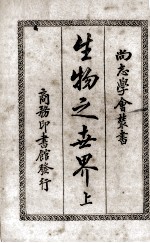 尚志學會叢書
生物之世界上
商務印書館發行